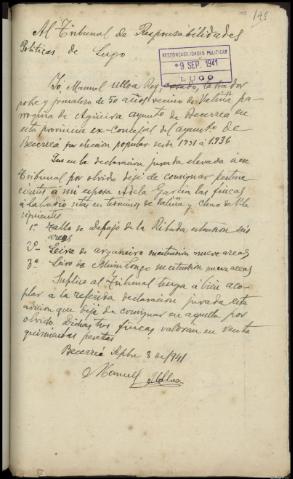 148
Al Tribunal de Responsabilidades
Políticas de Lugo
RESPONSABILIDADES POLITICAS
9 SEP. 1941
LUGO
Yo, Manuel Ulloa Rey casado, labrador
pobre y jornalero de 50 años vecino de Valiña pa-
rroquia de Agüeira ayunto de Becerreá en
esta provincia ex-Concejal del ayunto de
Becerreá por elección popular desde 1931 a 1936
Que en la declaración jurada elevada a ese
Tribunal por olvido dejé de consignar pertene-
ciente a mi esposa Adela García las fincas
a labradío sitas en terminos de Valiña y
siguientes
1ª Talla de debajo de la extension seis
areas
2ª Leira de mensura nueve areas
3ª areas
Suplico al Tribunal tenga a bien aco-
plar a la referida declaración jurada esta
adicion que dejé de consignar en aquella por
olvido. Dichas tres fincas, valoran en venta
quinientas pesetas
Becerreá Sepbre 3 de 1941
Manuel Ulloa